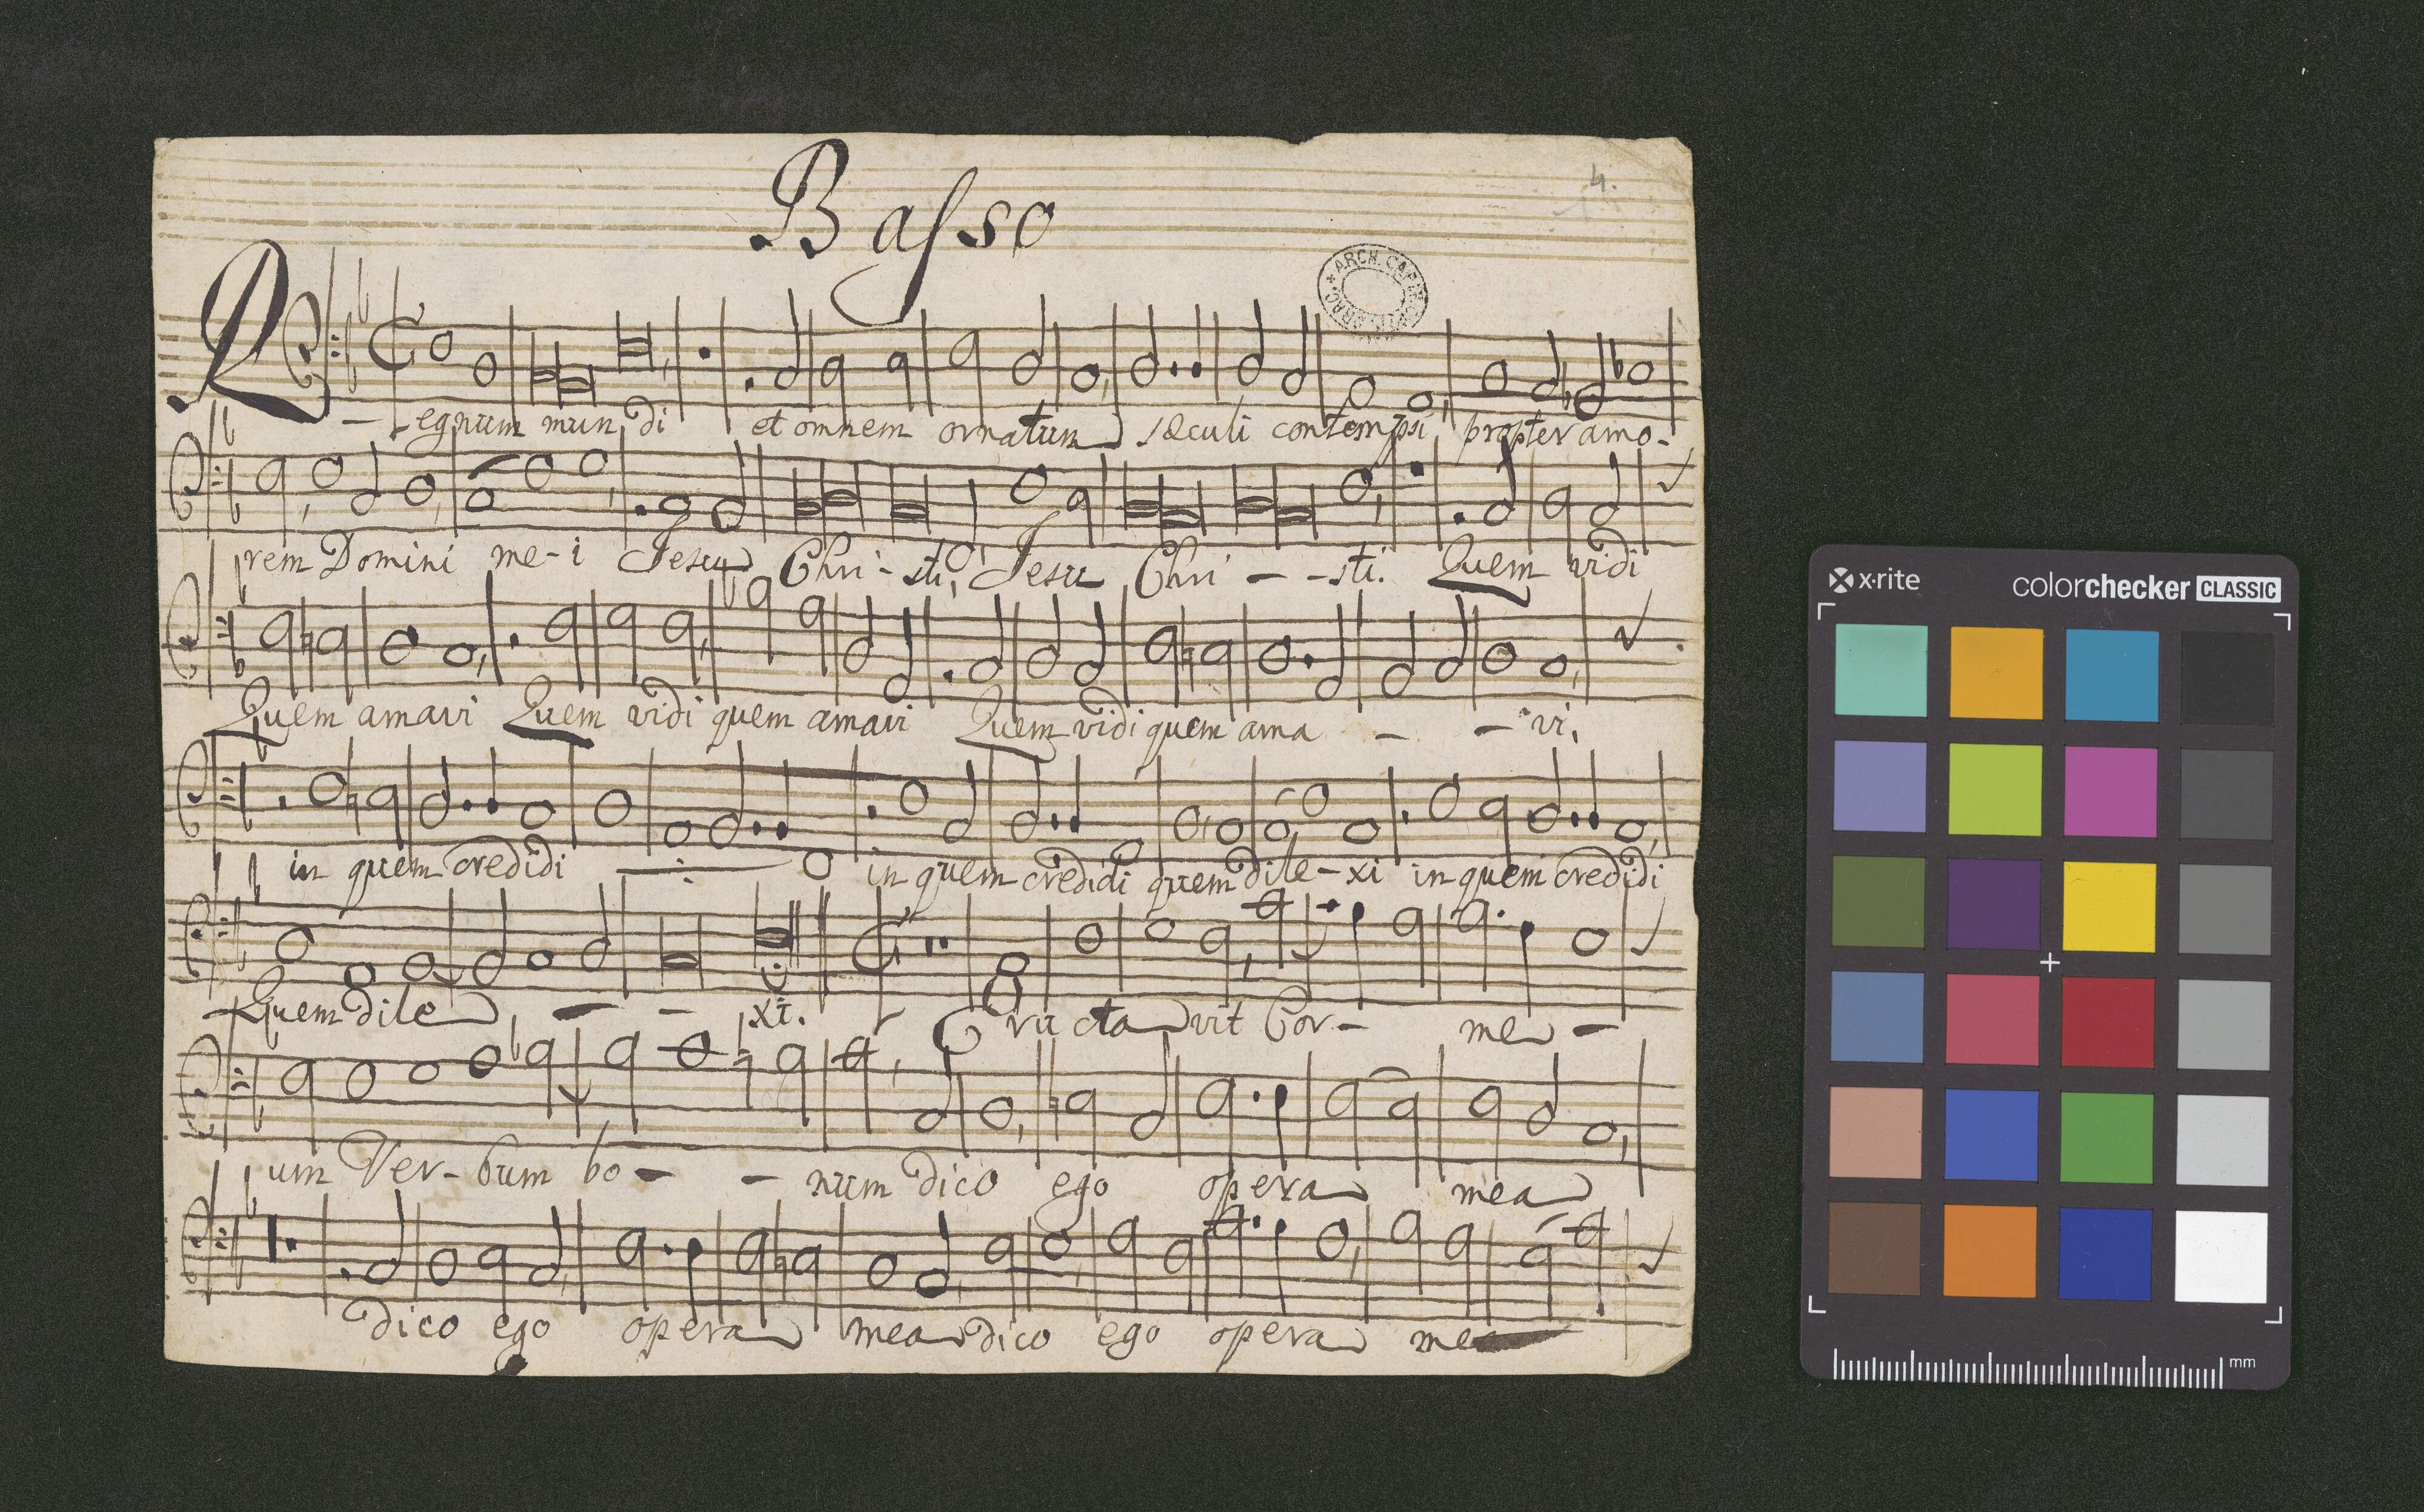 4.
Basso
ARCH. CAP.
Regnum mun di et omnem ornatum sæculi contempsi, propter amo-
rem Domini me-i Jesu Chri-sti, Jesu Chri - -sti. Quem vidi
Quem amavi Quem vidi quem amavi Quem vidi quem ama - - vi.
in quem credidi in quem credidi quem dile-xi in quem credidi
Quem dile - - xi. Eructavit Cor- me -
um Ver-bum bo- - num dico ego opera mea
dico ego opera mea dico ego opera mea
x·rite
colorchecker CLASSIC
mm